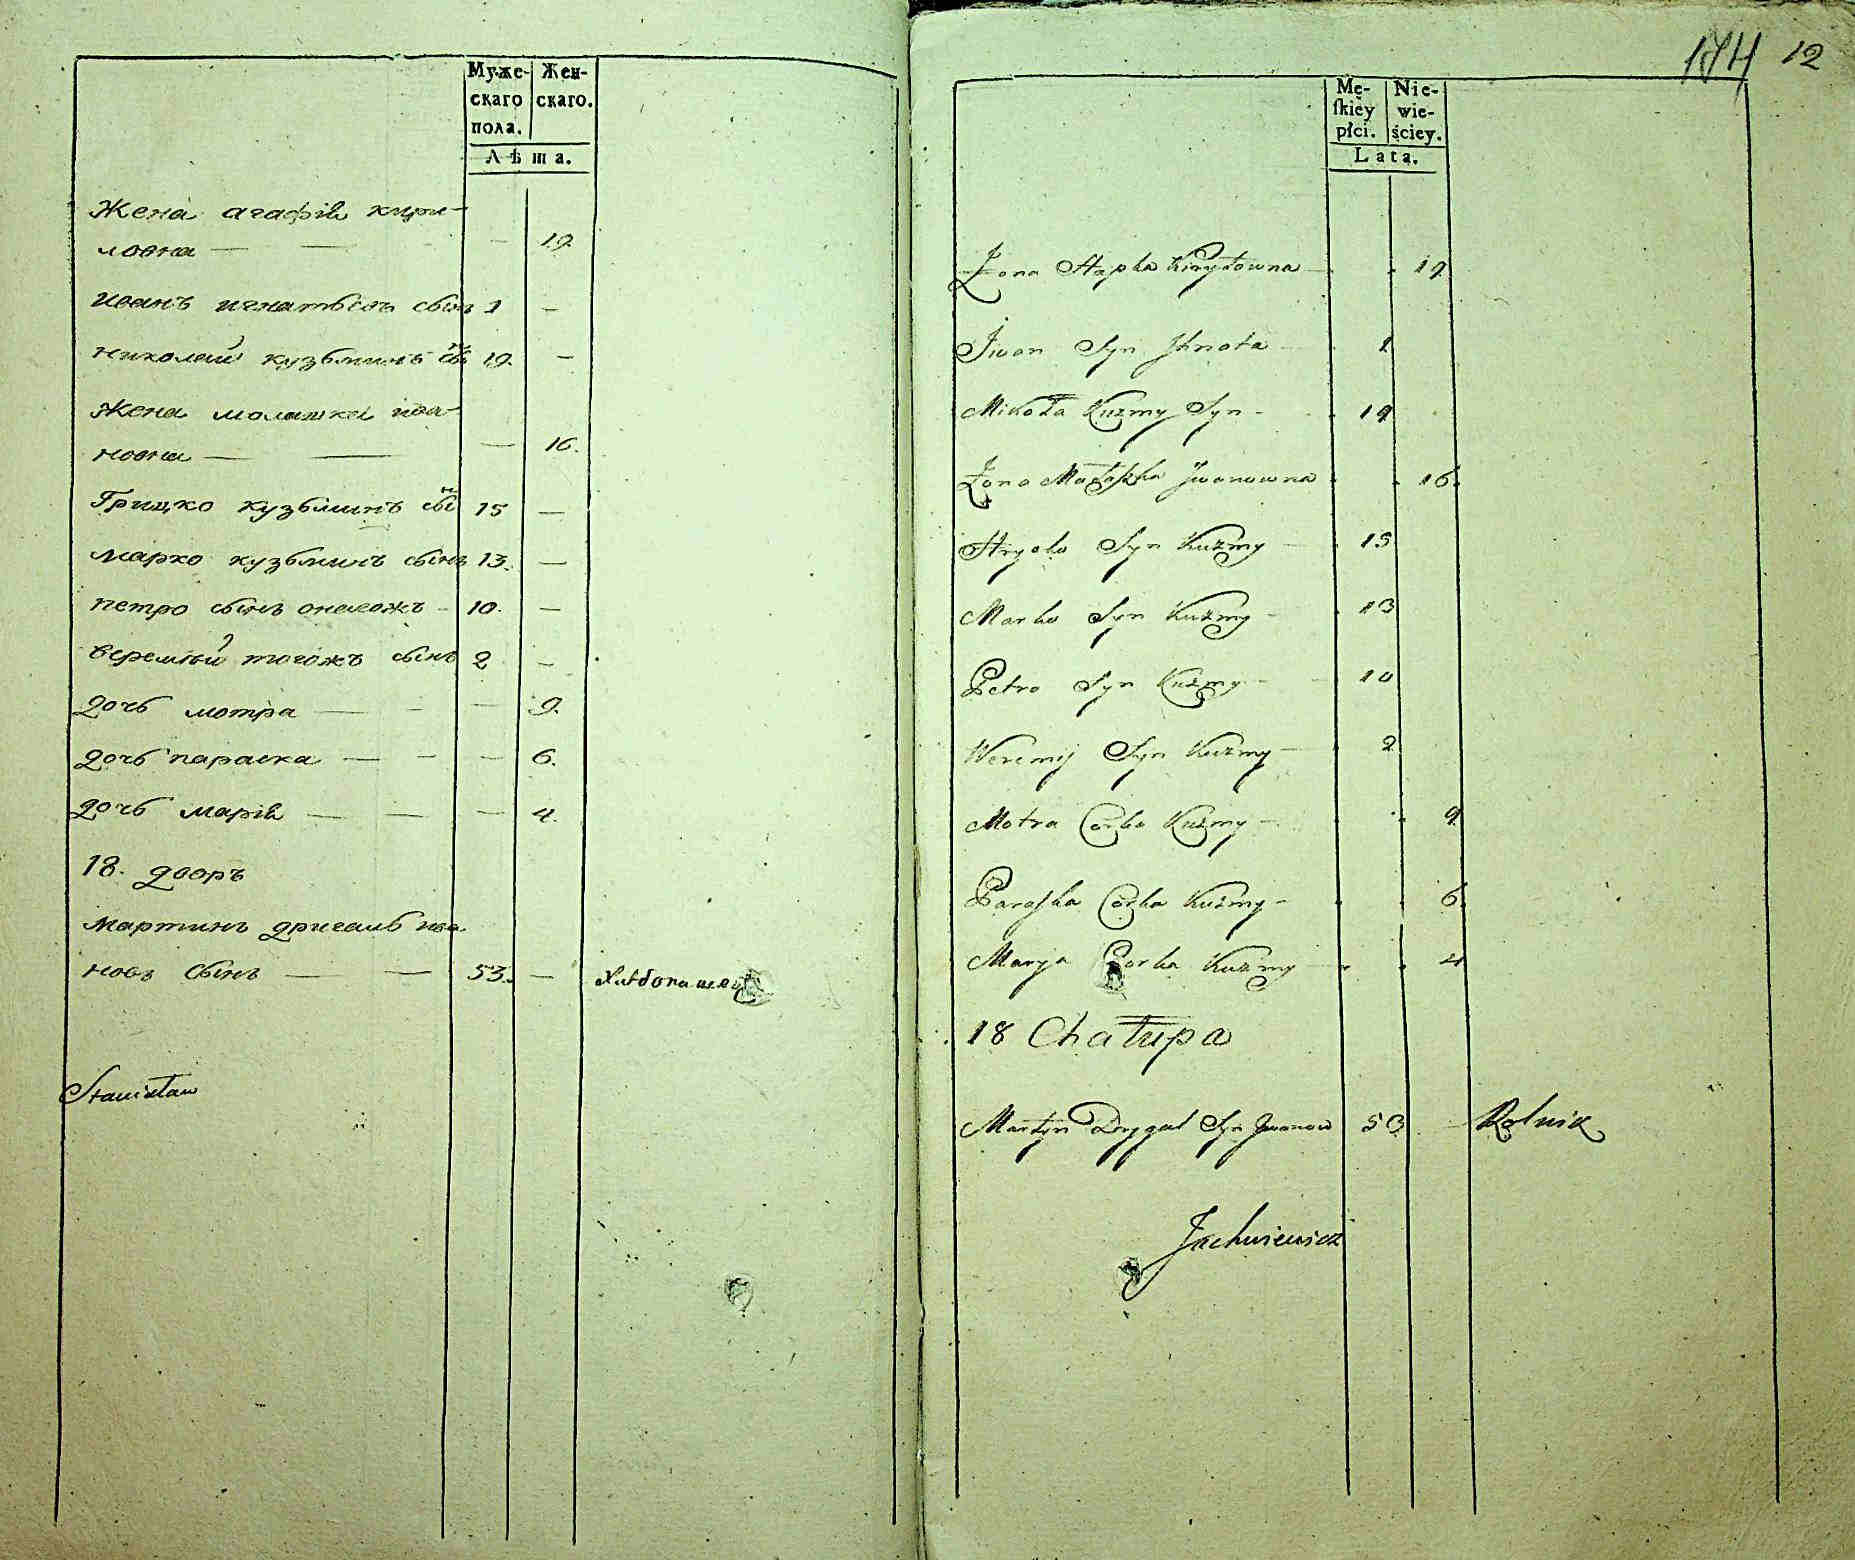 Муже- Жен-
скаго скаго.
пола.
Лѣта.
Жена агафія кири-
ловна — — — 19.
иванъ игнатьевъ сынъ 1 —
николай кузьминъ сынъ 19. —
Жена малашка ива-
новна — — — 16.
Грицко кузьминъ сынъ 15 —
марко кузьминъ сынъ 13. —
петро сынъ онагожъ — 10. —
веремѣй тогожъ сынъ 2 —
дочь мотра — - — 9.
дочь параска — - — 6.
дочь марія — — — 4.
18. дворъ
мартинъ дригаль ива
новъ сынъ — — 53. — Хлѣбопашец
Stanisław
174 12
Mę- Nie-
skiey wie-
płci. ściey.
Lata.
Żona Hapka Kiryłowna 19
Iwan Syn Ihnata 1
Mikoła Kuzmy Syn 19
Żona Małaszka Iwanowna 16
Hryćko Syn Kuźmy 15
Marko Syn Kuźmy 13
Petro Syn Kuźmy 10
Weremij Syn Kuźmy 2
Motra Corka Kuźmy 9
Paraska Corka Kuźmy 6
Marya Corka Kuźmy 4
18 Chałupa
Martyn Drygal Syn Iwanow 53 Rolnik
Jachniewicz